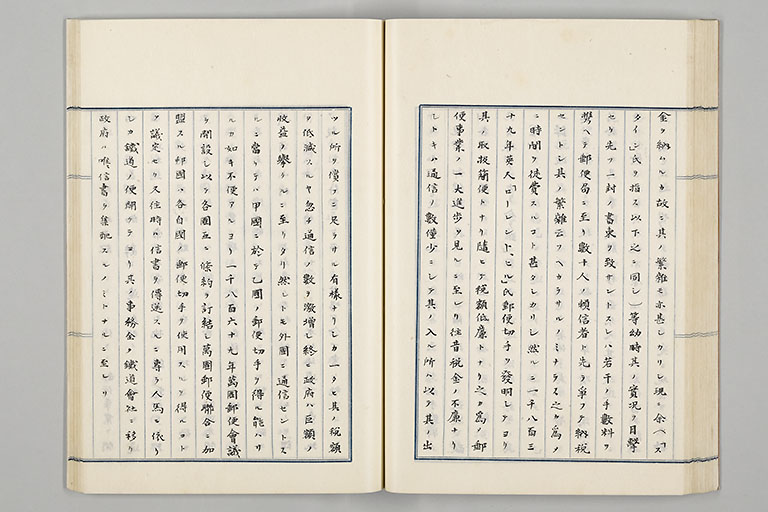 金ヲ納ムルカ故ニ其ノ繁雑モ亦甚シカリシ現ニ余ハ「ス
タイン」氏ヲ指ス以下之ニ同シ)等幼時其ノ實況ヲ目撃
セリ先ツ一封ノ書束ヲ致サントスレハ若干ノ手數料ヲ
携ヘテ郵便局ニ至リ數十人ノ頼信者ト先ヲ爭フテ納税
セントシ其ノ繁雑云フヘカラサルノミナラス之カ為メ
ニ時間ヲ徒費スルコト甚タシカリシ然ルニ一千八百三
十九年英人「ローレンド、ヒル」氏郵便切手ヲ發明シテヨリ
其ノ取扱簡便トナリ隨ヒテ税額低廉トナリ之カ為メ郵
便事業ノ一大進歩ヲ見ルニ至レリ往昔税金ノ不廉ナリ
シトキハ通信ノ數僅少ニシテ其ノ入ル所ハ以テ其ノ出
ツル所ヲ償フニ足ラサル有様ナリシカ一タヒ其ノ税額
ヲ低減スルヤ忽チ通信ノ數ヲ激増シ終ニ政府ハ巨額ノ
收益ヲ擧クルニ至リタリ然レトモ外國ニ通信セントス
ルニ當リテハ甲國ニ於テ乙國ノ郵便切手ヲ得ル能ハサ
ルカ如キ不便アルヨリ一千八百六十九年萬國郵便會議
ヲ開設シ以テ各國互ニ條約ヲ訂結シ萬國郵便聯合ニ加
盟スル邦國ハ各自國ノ郵便切手ヲ使用スルヲ得ルコト
ヲ議定セリ又往時ハ信書ヲ傳送スルニ專ラ人馬ニ依リ
シカ鐵道ノ便開ケテヨリ其ノ事務全ク鐵道會社ニ移リ
政府ハ唯信書ヲ集配スルノミトナルニ至レリ